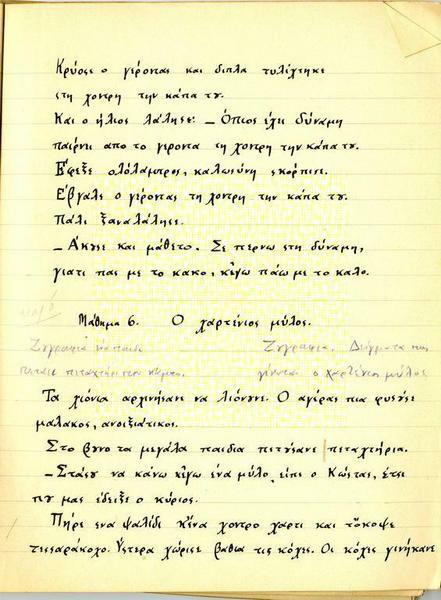 Κρύοσε ο γέροντας και διπλα τυλίχτηκε
στη χοντρη την κάπα τυ.
Και ο ήλιος λάλησε: – Όπιος έχι δύναμη
παίρνι απο το γεροντα τη χοντρη την κάπα τυ.
Εφεξε ολόλαμπρος, καλωσύνη σκόρπισε.
Έβγαλε ο γέροντας τη χοντρη την κάπα τυ.
Πάλι ξαναλάλησε.
– Άκυσε και μάθετο. Σε περνω στη δύναμη,
γιατι πας με το κακο, κ' εγω πάω με το καλο.
Μάθημα 6. Ο χαρτένιος μύλος.
Ζυγραφια Ζυγραφια. Δείγματα πως
γίνεται ο χαρτένιος μύλος
Τα χιόνια αρχινήσανε να λιόνυνε. Ο αγέρας πια φυσύσε
μαλακος, ανοιξιάτικος.
Στο βυνο τα μεγάλα παιδια πετύσανε πεταχτήρια.
– Στάσυ να κάνω κ' εγω ένα μύλο, είπε ο Κώστας, έτσι
πυ μας έδειξε ο κύριος.
Πήρε ενα ψαλίδι κ' ένα χοντρο χαρτι και τόκοψε
τεσσαράκοχο. Ύστερα χώρισε βαθια τις κόχες. Οι κόχες γινήκανε